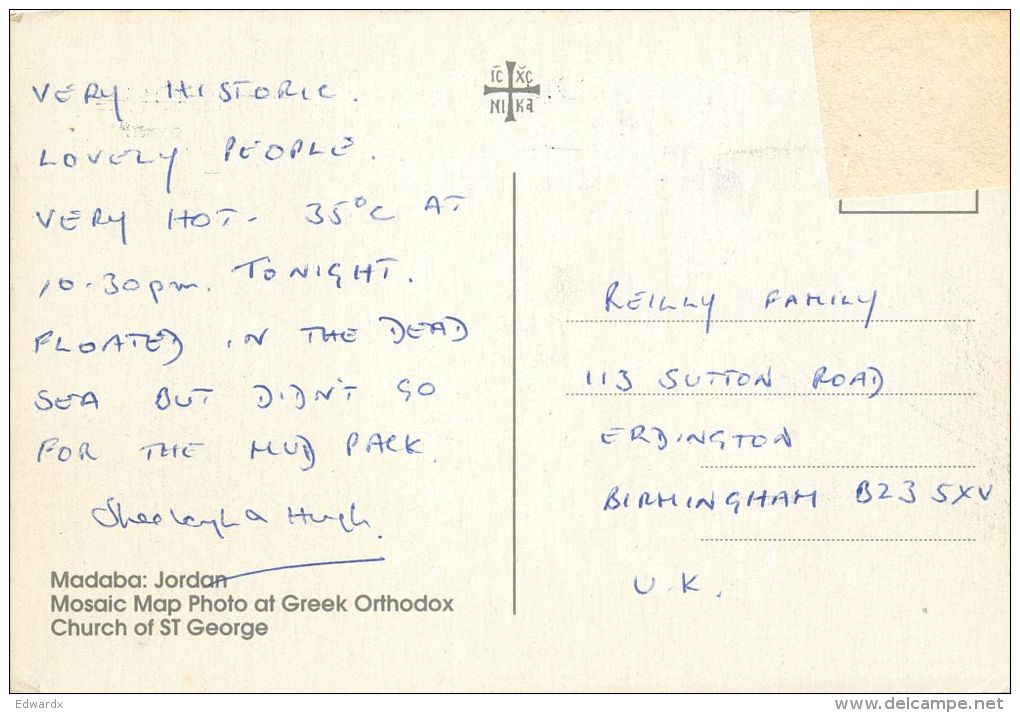 VERY HISTORIC.
LOVELY PEOPLE.
VERY HOT - 35°C AT
10-30pm. TONIGHT.
FLOATED IN THE DEAD
SEA BUT DIDN'T GO
FOR THE MUD PACK.
& Hugh.
Madaba: Jordan
Mosaic Map Photo at Greek Orthodox
Church of ST George
IC XC
NI KA
REILLY FAMILY
113 SUTTON ROAD
ERDINGTON
BIRMINGHAM B23 5XV
U.K.
Edwardx
www.delcampe.net